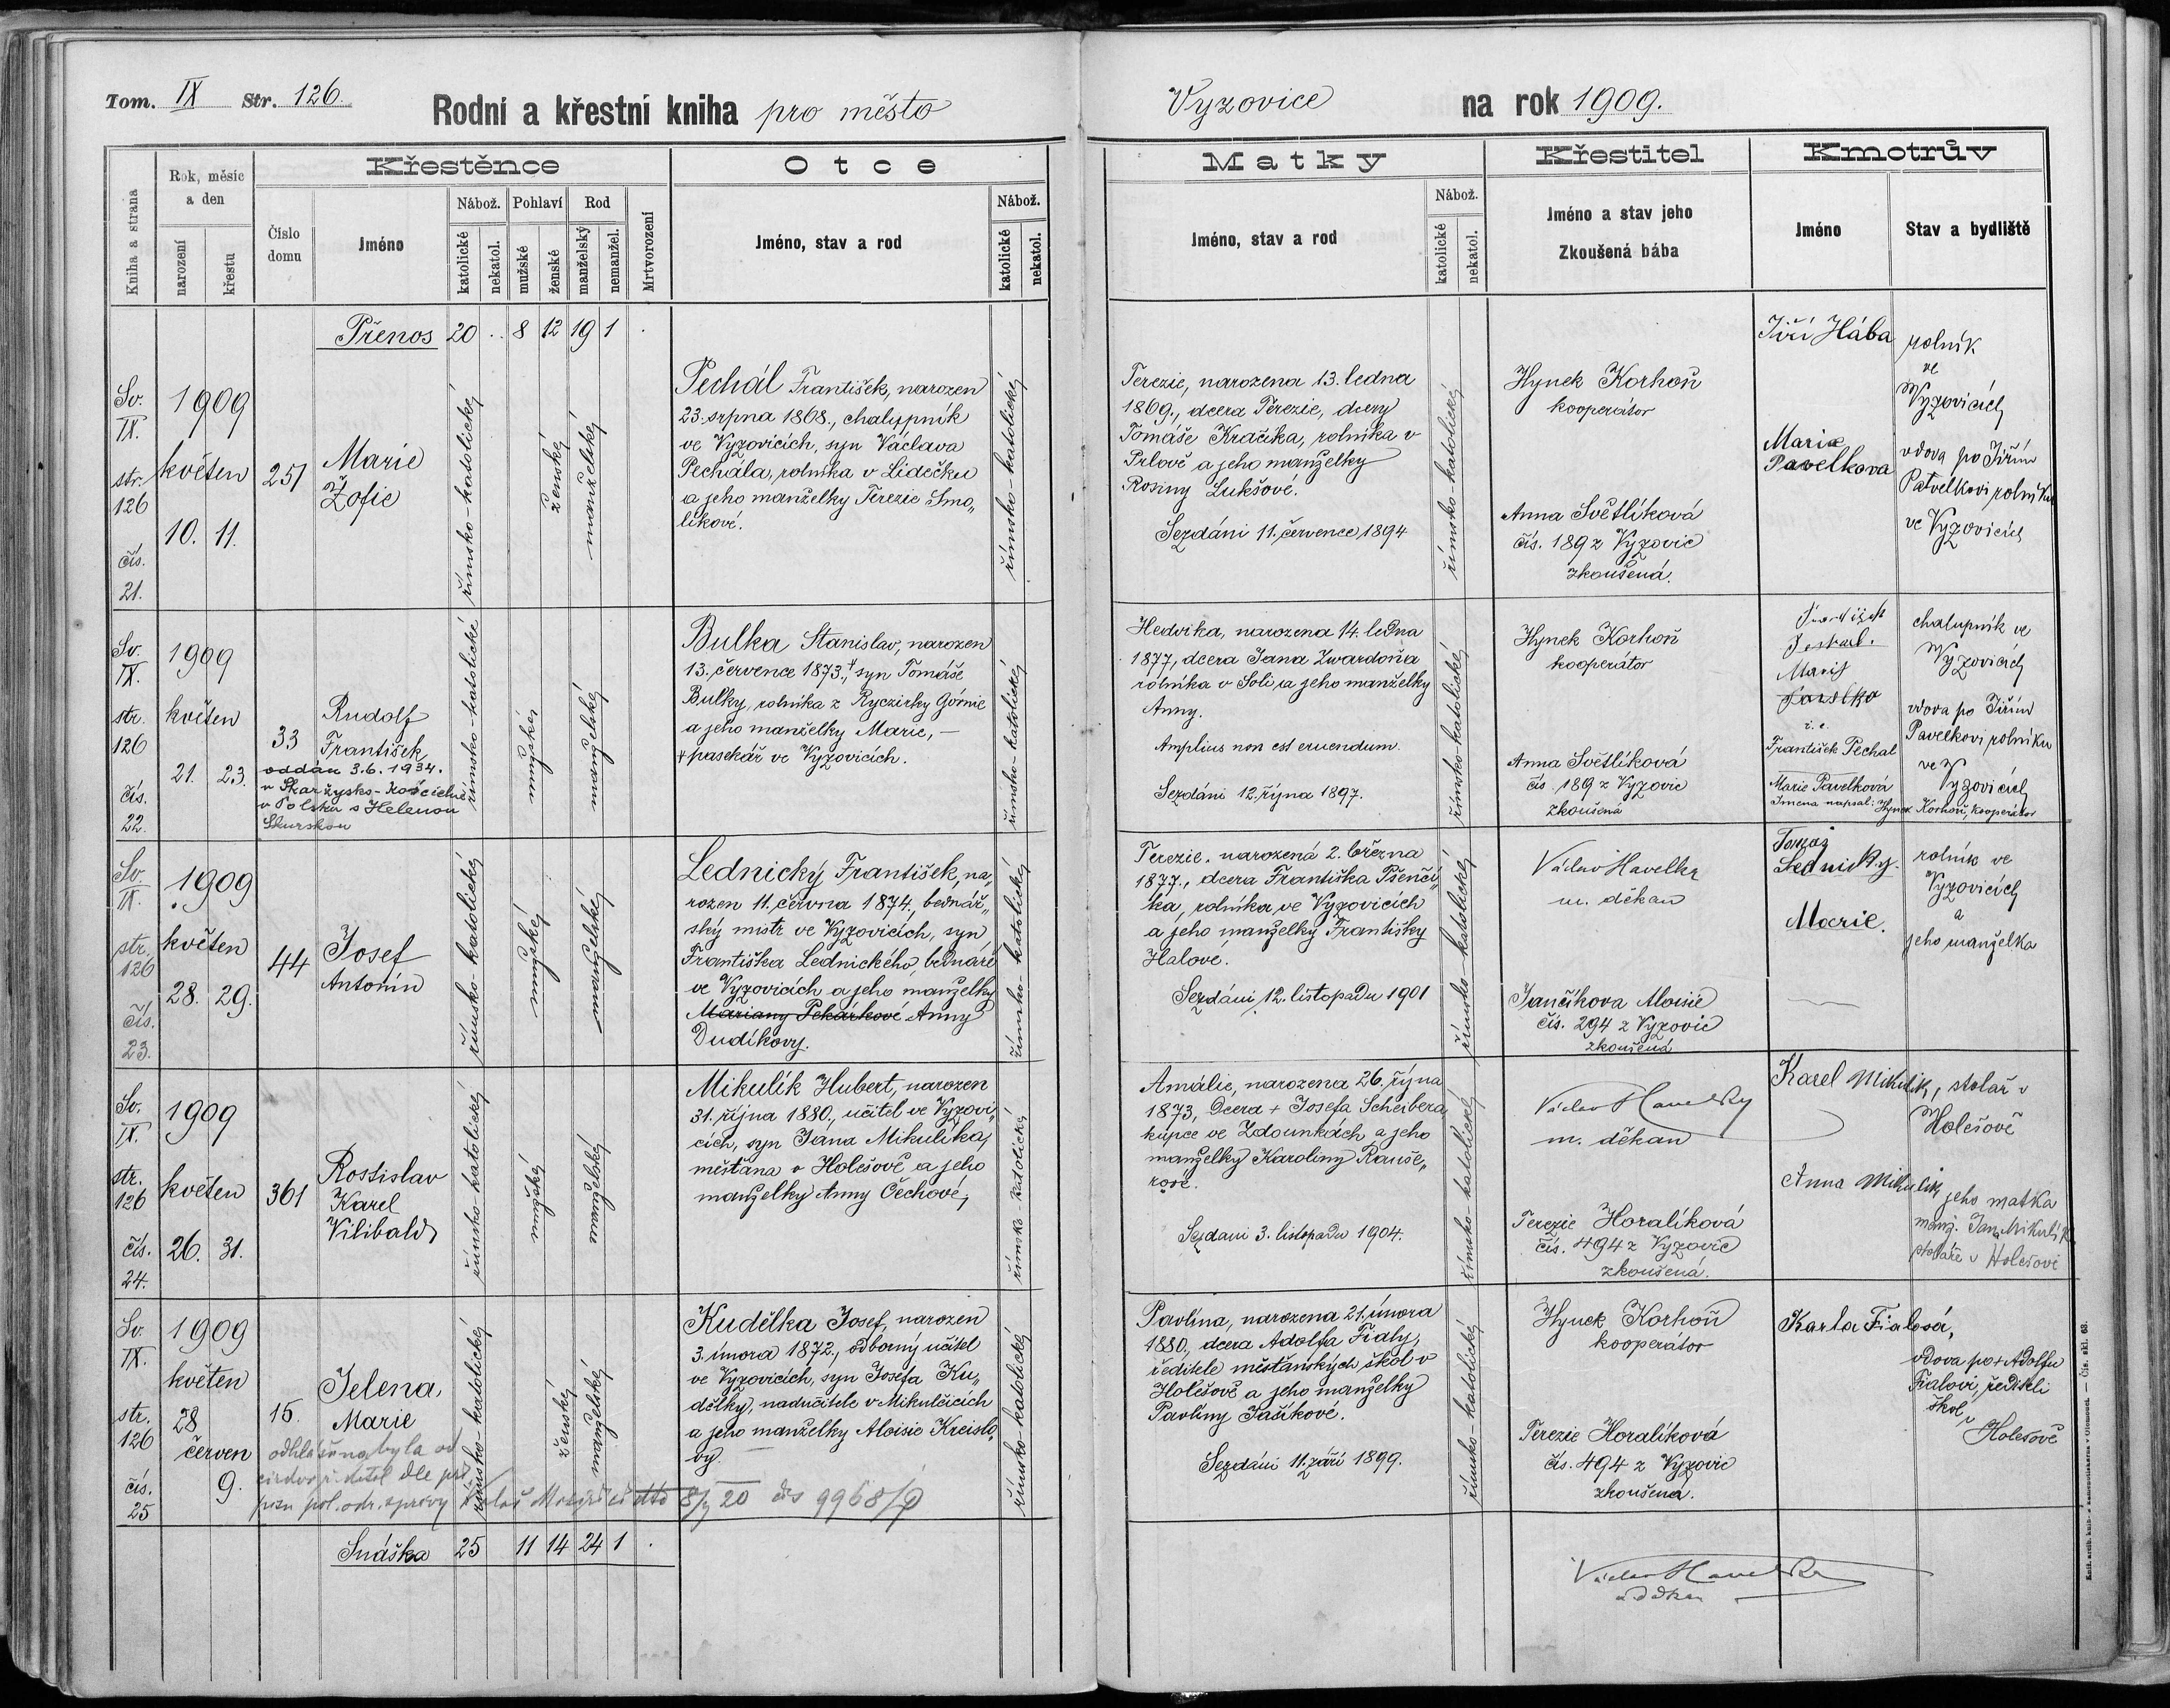 Tom. IX Str. 126.
Rodní a křestní kniha pro město
Vyzovice
na rok 1909.
Kniha a strana
Rok, měsíc
a den
narození
křestu
Křestěnce
Číslo
domu
Jméno
Nábož.
katolické
nekatol.
Pohlaví
mužské
ženské
Rod
manželský
nemanžel.
Mrtvorození
Otce
Jméno, stav a rod
Nábož.
katolické
nekatol.
Matky
Jméno, stav a rod
Nábož.
katolické
nekatol.
Křestitel
Jméno a stav jeho
Zkoušená bába
Kmotrův
Jméno
Stav a bydliště
Přenos 20 . 8 12 19 1 .
Sv.
IX.
str.
126
čís.
21.
1909
květen
10. 11.
251
Marie
Žofie
římsko-katolické
ženské
manželské
Pechál František, narozen
23. srpna 1868., chalupník
ve Vyzovicích, syn Václava
Pechála, rolníka v Lidečku
a jeho manželky Terezie Smo„
líkové.
římsko-katolické
Terezie, narozena 13. ledna
1869., dcera Terezie, dcery
Tomáše Kračíka, rolníka v
Prlově a jeho manželky
Rosiny Lukšové.
Sezdáni 11. července 1894
římsko-katolické
Hynek Korhoň
kooperátor
Anna Světlíková
čís. 189 z Vyzovic
zkoušená.
Jiří Hába
rolník
ve
Vyzovicích
Marie
Pavelkova
vdova po Jiřím
Pavelkovi rolníku
ve Vyzovicích
Sv.
IX.
str.
126
čís.
22.
1909
květen
21. 23.
33
Rudolf
František
oddán 3.6.1934.
v Skaržysko-Kościelne
v Polsku s Helenou
Skurskou
římsko-katolické
mužské
manželské
Bulka Stanislav, narozen
13. července 1873.,+ syn Tomáše
Bulky, rolníka z Ryczirky Górnie
a jeho manželky Marie, —
+ pasekář ve Vyzovicích.
římsko-katolické
Hedvika, narozena 14. ledna
1877, dcera Jana Zwardoňa
rolníka v Soli a jeho manželky
Anny.
Amplius non est eruendum.
Sezdáni 12. října 1897.
římsko-katolické
Hynek Korhoň
kooperátor
Anna Světlíková
čís. 189 z Vyzovic
zkoušená
František Pechal
Marie Pavelková
Jmena napsal: Hynek Korhoň, kooperátor
chalupník ve
Vyzovicích
vdova po Jiřím
Pavelkovi rolníku
ve
Vyzovicích
Sv.
IX.
str.
126
čís.
23.
1909
květen
28. 29.
44
Josef
Antonín
římsko-katolické
mužské
manželské
Lednický František, na„
rozen 11. června 1874., bednář„
ský mistr ve Vyzovicích, syn
Františka Lednického, bednáře
ve Vyzovicích a jeho manželky
Mariany Pekárkové Anny
Dudíkovy.
římsko-katolické
Terezie, narozená 2. března
1877., dcera Františka Pšenčí„
ka, rolníka ve Vyzovicích
a jeho manželky Františky
Halové.
Sezdáni 12. listopadu 1901
římsko-katolické
Václav Havelka
m. děkan
Jančíkova Aloisie
čís. 294 z Vyzovic
zkoušená
Tomáš
Lednický.
Marie.
rolník ve
Vyzovicích
a
jeho manželka
Sv.
IX.
str.
126
čís.
24.
1909
květen
26. 31.
361
Rostislav
Karel
Vilibald
římsko-katolické
mužské
manželské
Mikulík Hubert, narozen
31. října 1880., učitel ve Vyzovi„
cích, syn Jana Mikulíka,
měšťana v Holešově a jeho
manželky Anny Čechové,
římsko-katolické
Amálie, narozena 26. října
1873, dcera + Josefa Scheibera
kupce ve Zdounkách a jeho
manželky Karoliny Rauše„
rové.
Sezdani 3. listopadu 1904.
římsko-katolické
Václav Havelka
m. děkan
Terezie Horalíková
čís. 494 z Vyzovic
zkoušená.
Karel Mikulík, stolař v
Holešově
Anna Mikulík
jeho matka
manž. Jana Mikulíka
stolaře v Holešově
Sv.
IX.
str.
126
čís.
25
1909
květen
28
červen
9.
15.
Jelena,
Marie
odhlášena byla od
církve dle pří
pisu pol. odr. správy
8/9 20 čís 9968/
římsko-katolické
ženské
manželské
Kudělka Josef, narozen
3. února 1872., odborný učitel
ve Vyzovicích, syn Josefa Ku„
dělky, nadučitele v Mikulčicích
a jeho manželky Aloisie Kreislo„
vy.
římsko-katolické
Pavlína, narozena 21. února
1880, dcera Adolfa Fialy,
ředitele měšťanských škol v
Holešově a jeho manželky
Pavlíny Jašíkové.
Sezdáni 11. září 1899.
římsko-katolické
Hynek Korhoň
kooperátor
Terezie Horalíková
čís. 494 z Vyzovic
zkoušená.
Karla Fialová,
vdova po + Adolfu
Fialovi, řediteli
škol v
Holešově
Snáška 25 11 14 24 1 .
Václav Havelka